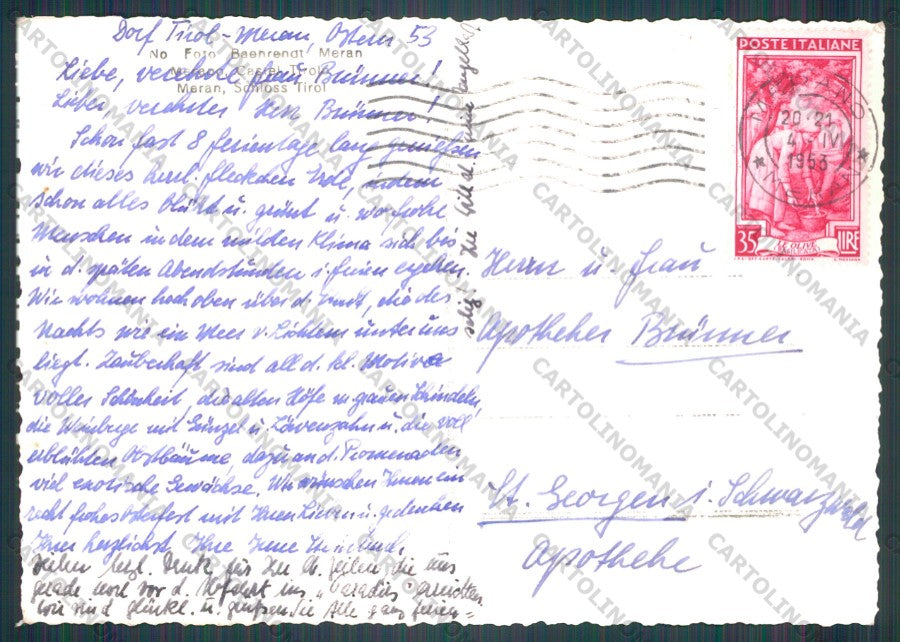 Dorf Tirol - Meran, Ostern 53
No Foto Baehrendt Meran
Castel Tirolo
Meran, Schloss Tirol
Liebe, verehrte Frau Brünner!
Lieber, verehrter Herr Brünner!
Schon fast 8 Ferientage lang genießen
wir dieses herrl. Fleckchen Erde, indem
schon alles blüht u. grünt u. wo frohe
Menschen in dem milden Klima sich bis
in d. späten Abendstunden i. freien ergehen.
Wir wohnen hoch oben über d. Stadt, die des
Nachts wie ein Meer v. Lichtern unter uns
liegt. Zauberhaft sind all d. kl. Motive
voller Schönheit, die alten Höfe m. grauen Schindeln,
die Weinberge mit Günzel u. Löwenzahn u. die voll
erblühten Obstbäume, dazu an d. Promenaden
viel exotische Gewächse. Wir wünschen Ihnen ein
recht frohes Osterfest mit Ihren Lieben u. gedenken
Ihrer herzlichst. Ihre Irene
Vielen herzl. Dank für Ihre lb. Zeilen, die uns
gerade noch vor d. Abfahrt ins "Paradies" erreichten
wir sind glückl. u. grüßen Sie Alle ganz
selig
Herrn u. Frau
Apotheker Brünner
St. Georgen i. Schwarzwald
Apotheke
POSTE ITALIANE
20-21
1953
35 LIRE
CARTOLINOMANIA